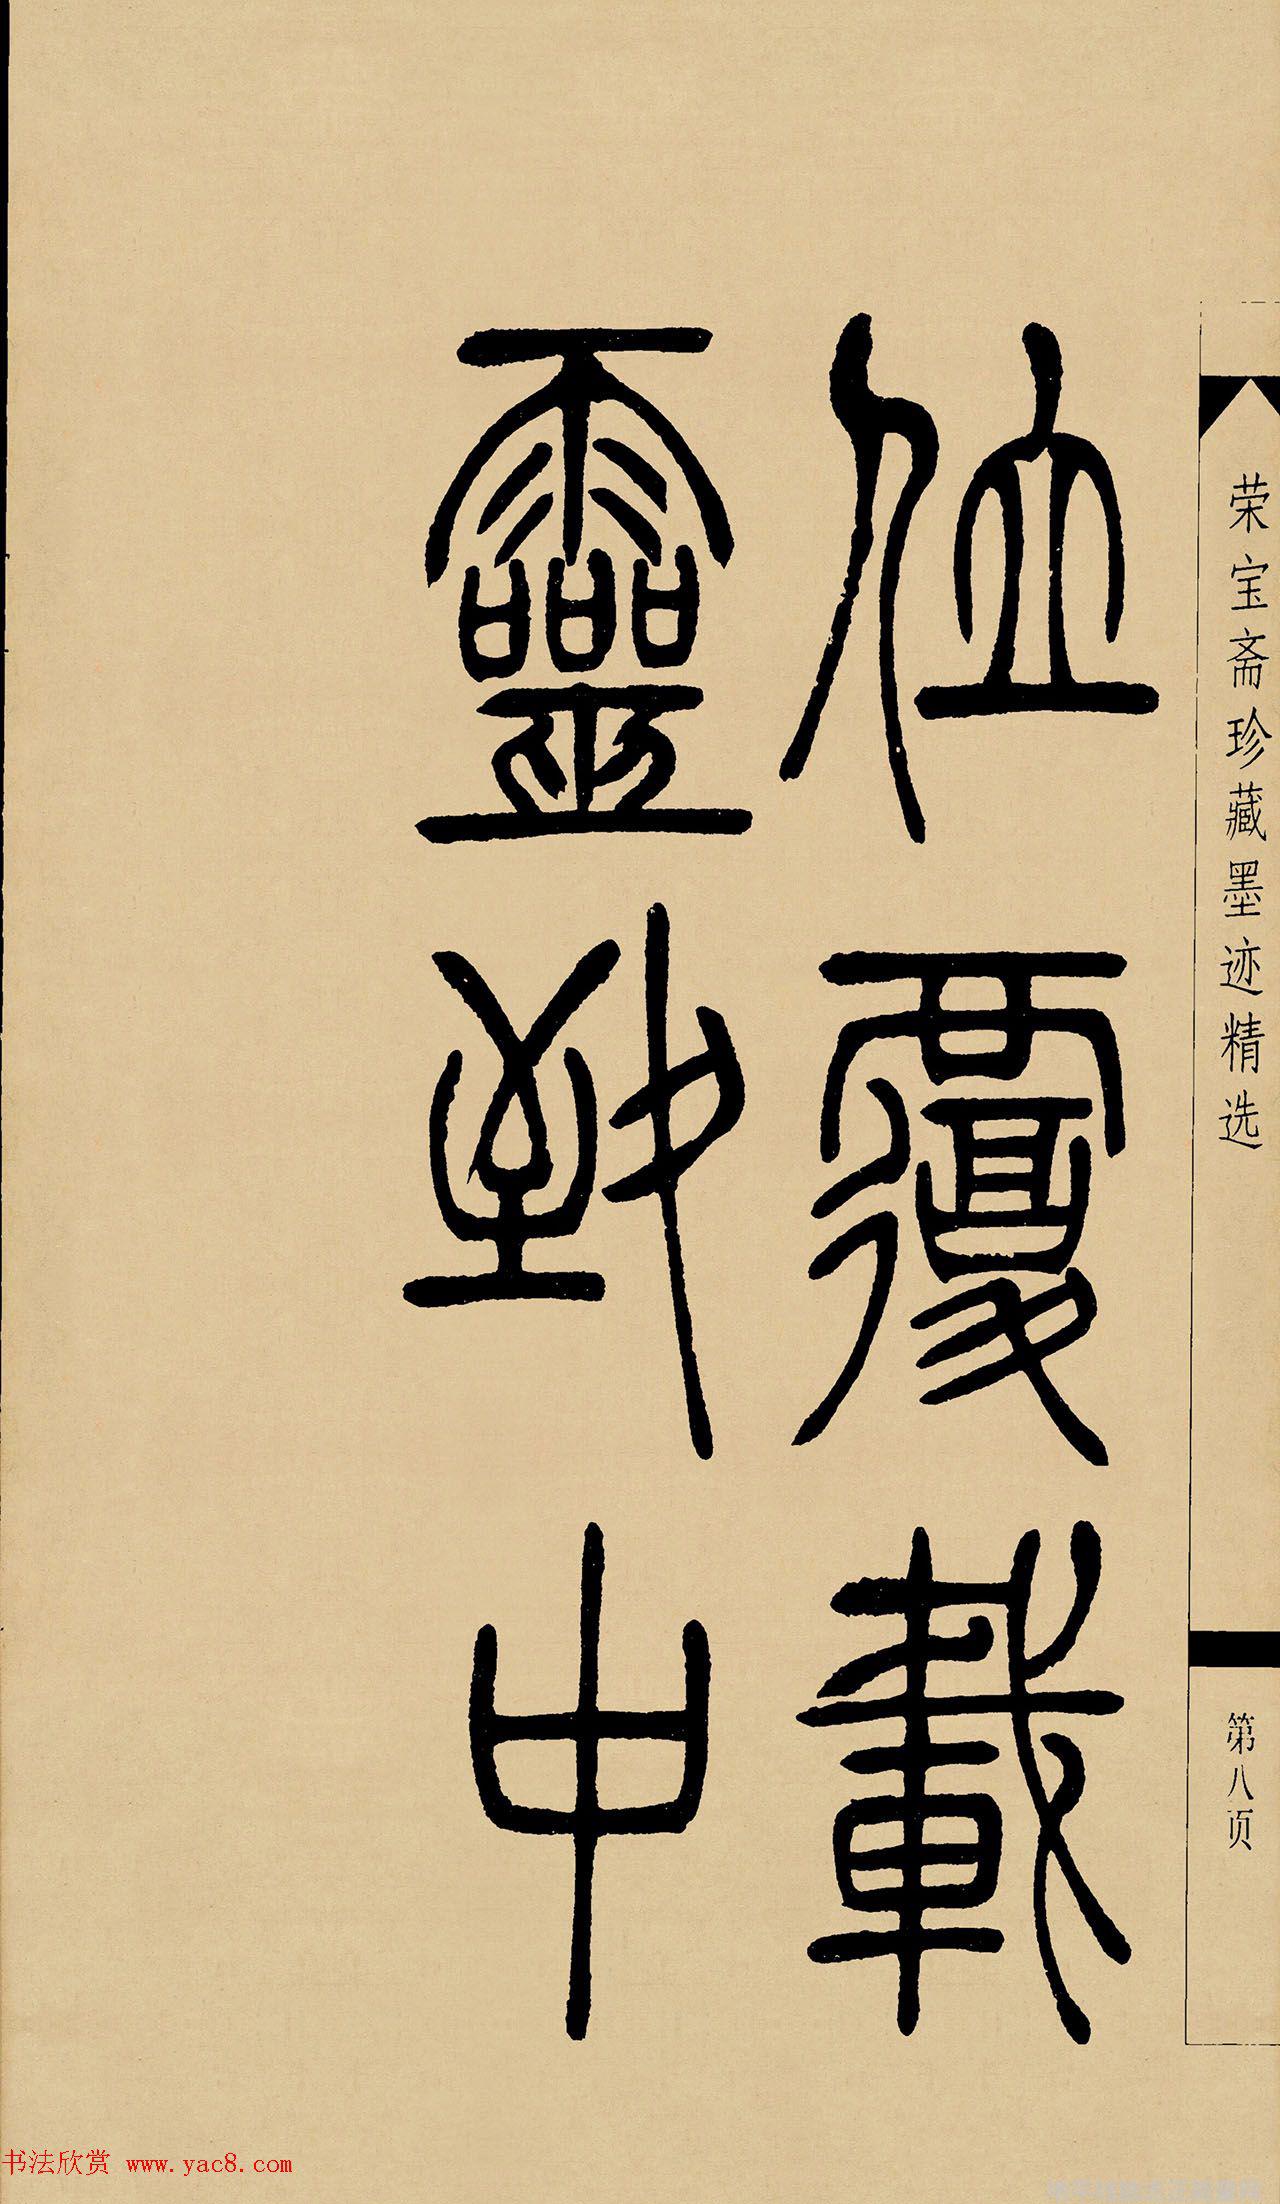 荣宝斋珍藏墨迹精选
第八页
位覆載
靈致中
书法欣赏 www.yac8.com